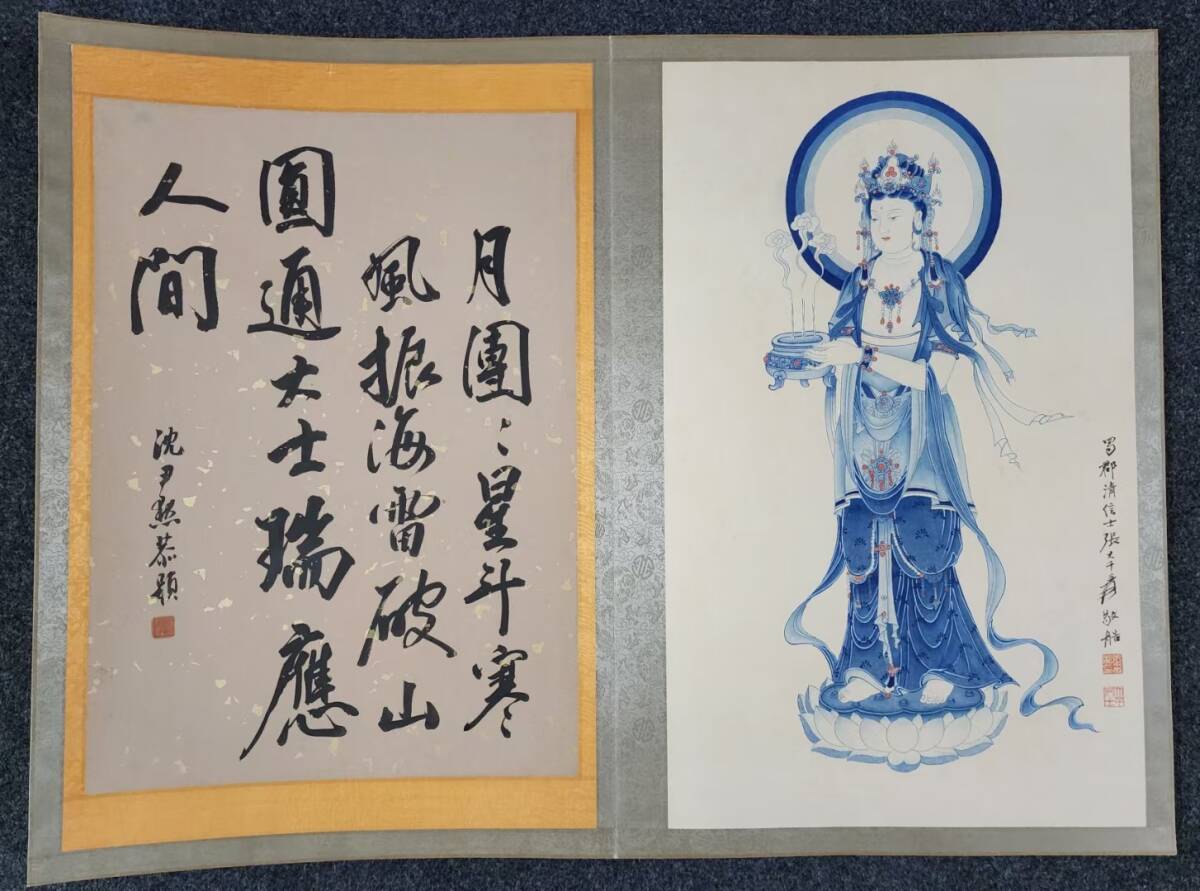 蜀郡清信士張大千爰敬艁
月團〻星斗寒〻
風振海雷破山
圓通大士瑞應
人間
沈尹默恭題